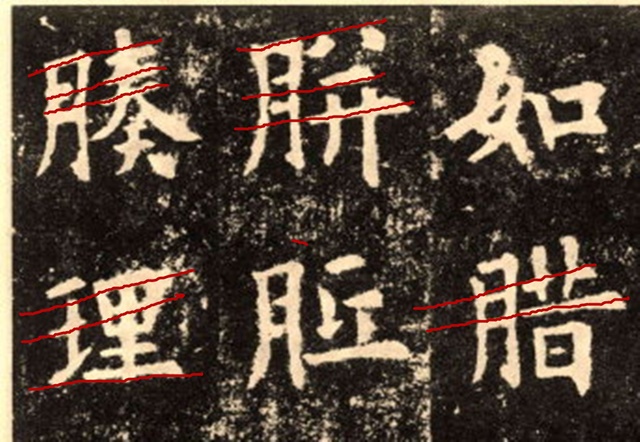 如腊
胼胝
腠理